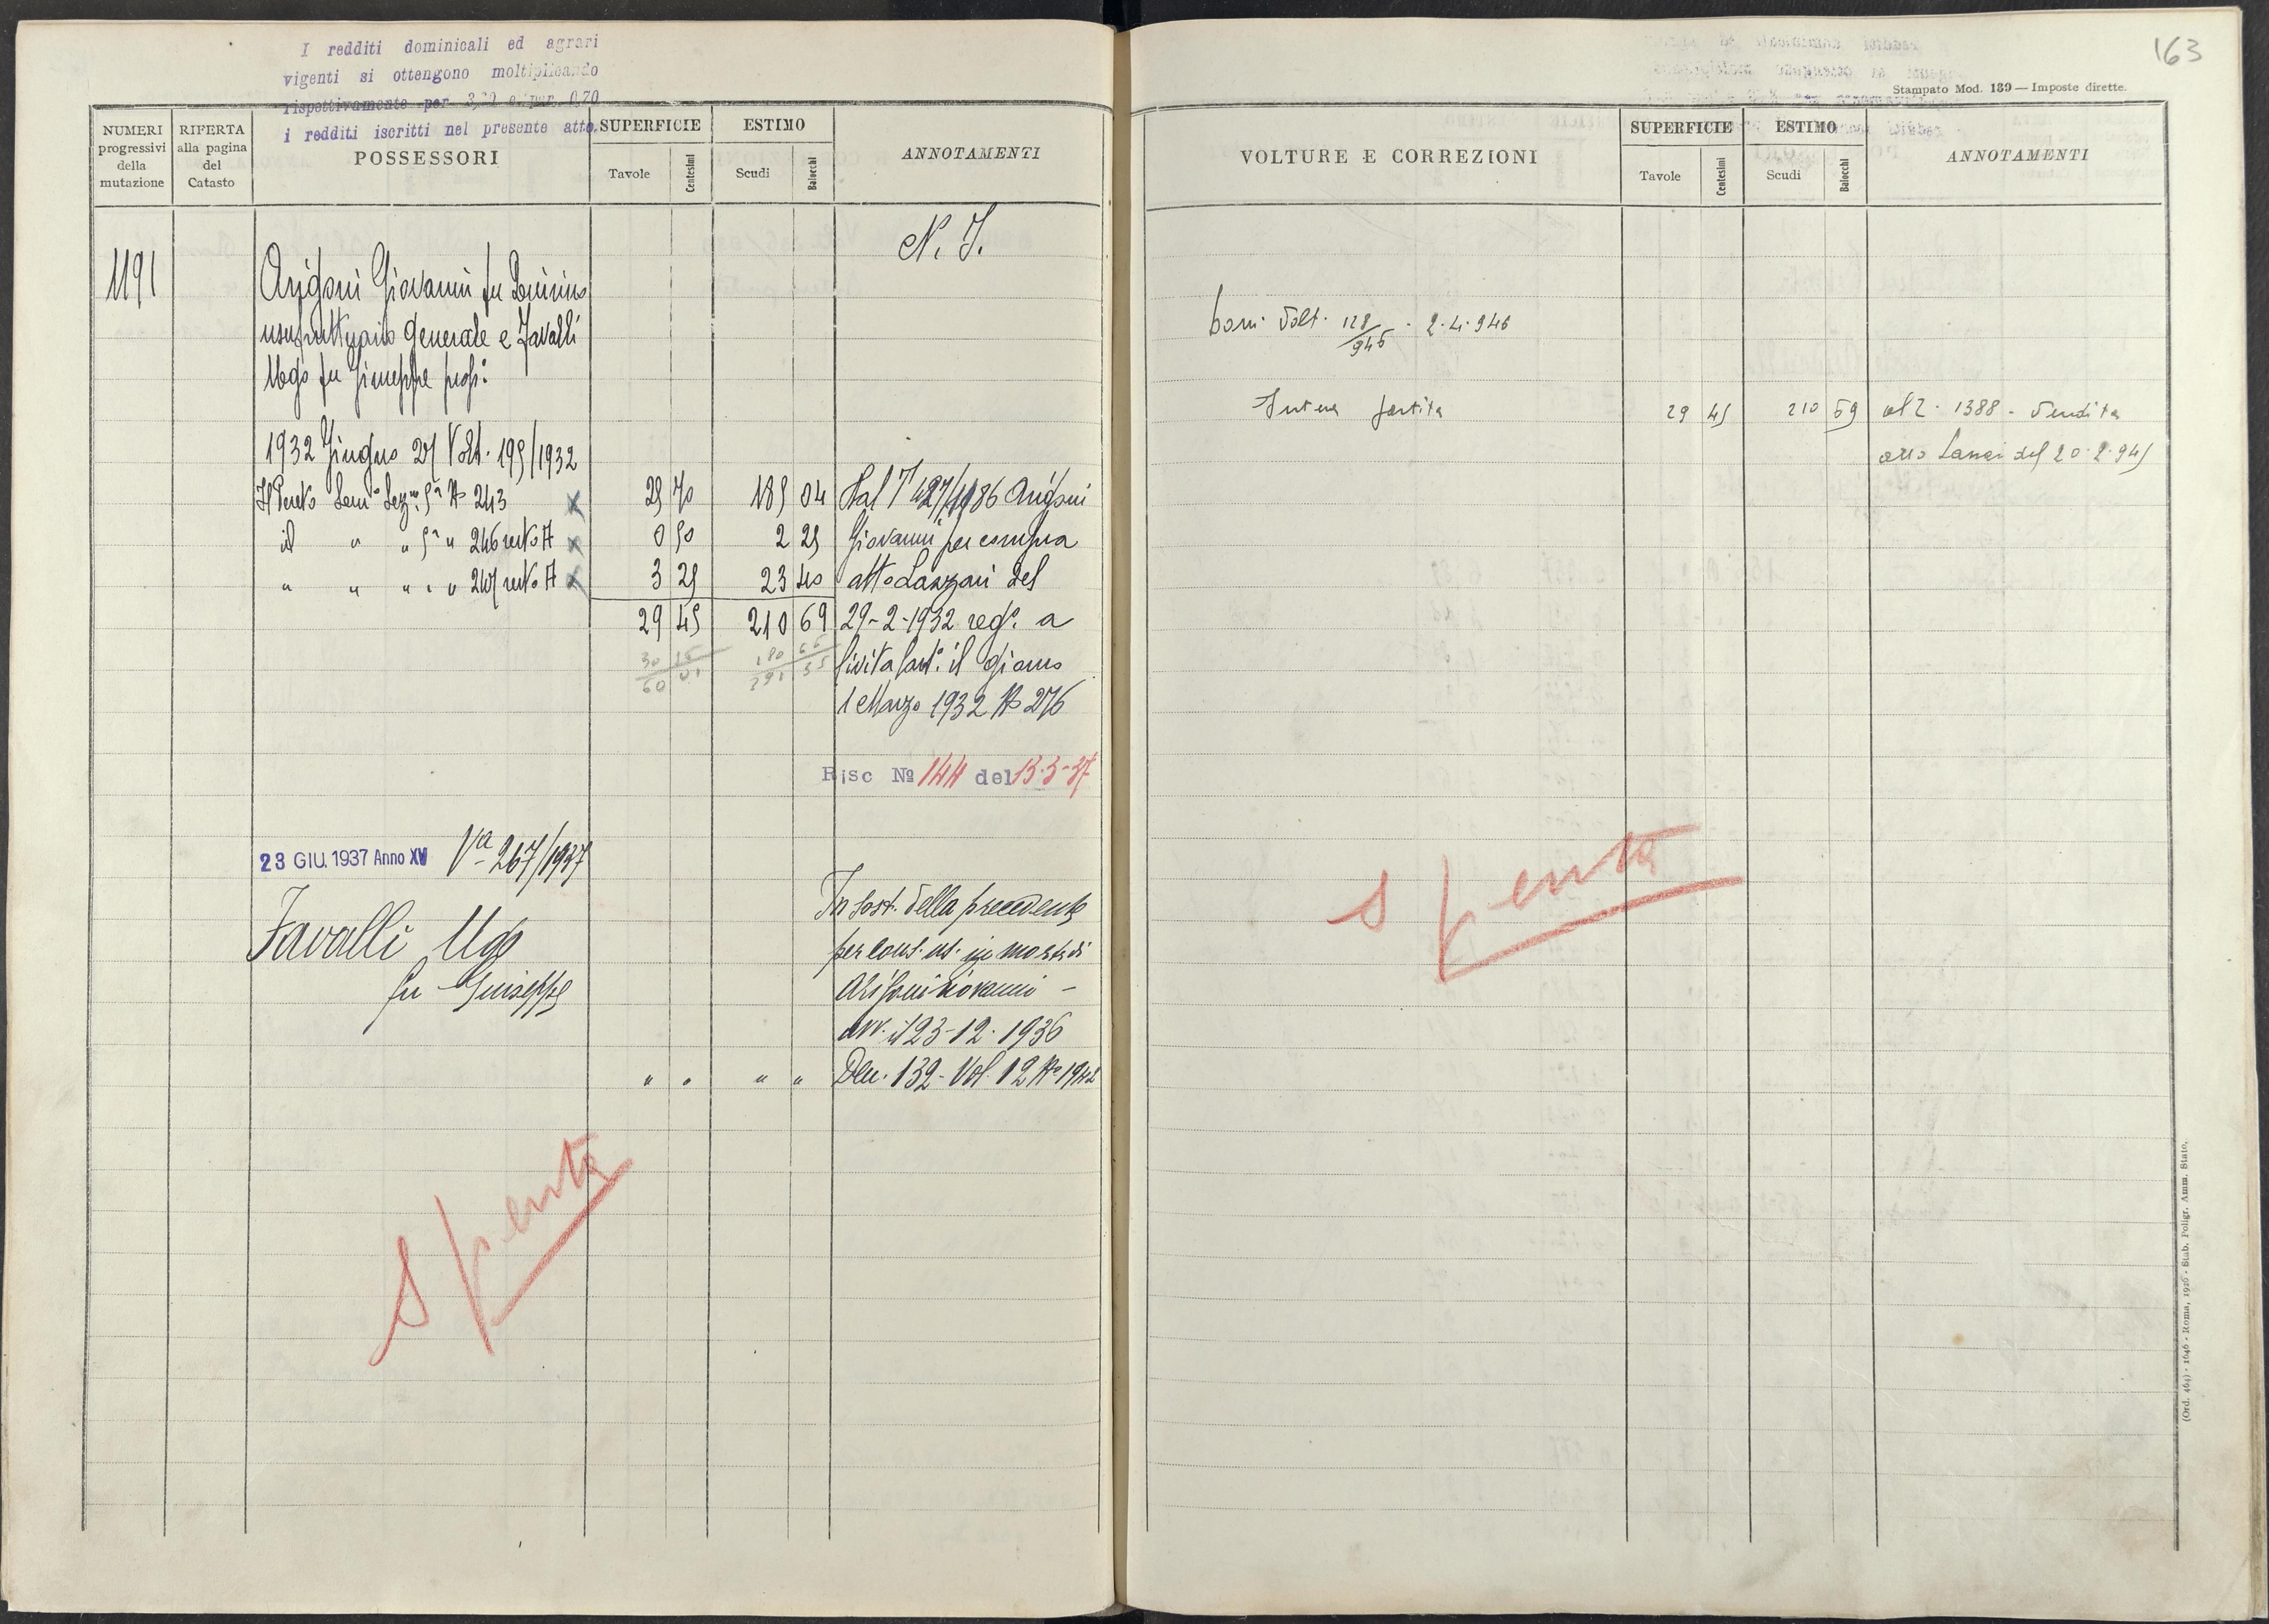 I redditi dominicali ed agrari
vigenti si ottengono moltiplicando
rispettivamente per 3,20 e per 0,70
i redditi iscritti nel presente atto.
NUMERI progressivi della mutazione
RIFERTA alla pagina del Catasto
POSSESSORI
SUPERFICIE
Tavole
Centesimi
ESTIMO
Scudi
Baiocchi
ANNOTAMENTI
N. I.
1191
Arigoni Giovanni fu
usufruttuario generale e Favalli
Ugo fu Giuseppe
1932 Giugno 27 Volt. 199/1932
243 29 70 185 04 Dal 1186 Arigoni
id " " 5a " 246 resto A 0 50 2 25 Giovanni per compra
" " " " " 247 resto A 3 25 23 40 atto Lanzani del
29 45 210 69 29-2-1932 reg. a
il giorno
1 Marzo 1932 No 276
Risc No 144 del 13-3-37
23 GIU. 1937 Anno XV Va 267/1937
In sost. della precedente
Favalli Ugo
per cons. us. in morte di
fu Giuseppe
Arigoni Giovanni -
avv. il 23-12-1936
" " " " Den. 132 - Vol. 12 No 1942
Spenta
163
Stampato Mod. 139 — Imposte dirette.
VOLTURE E CORREZIONI
SUPERFICIE
Tavole
Centesimi
ESTIMO
Scudi
Baiocchi
ANNOTAMENTI
Volt. 128/946 - 2.4.946
Intera partita 29 45 210 69 al 1388 - Vendita
del 20.2.945
Spenta
(Ord. 464) - 1646 - Roma, 1926 - Stab. Poligr. Amm. Stato.